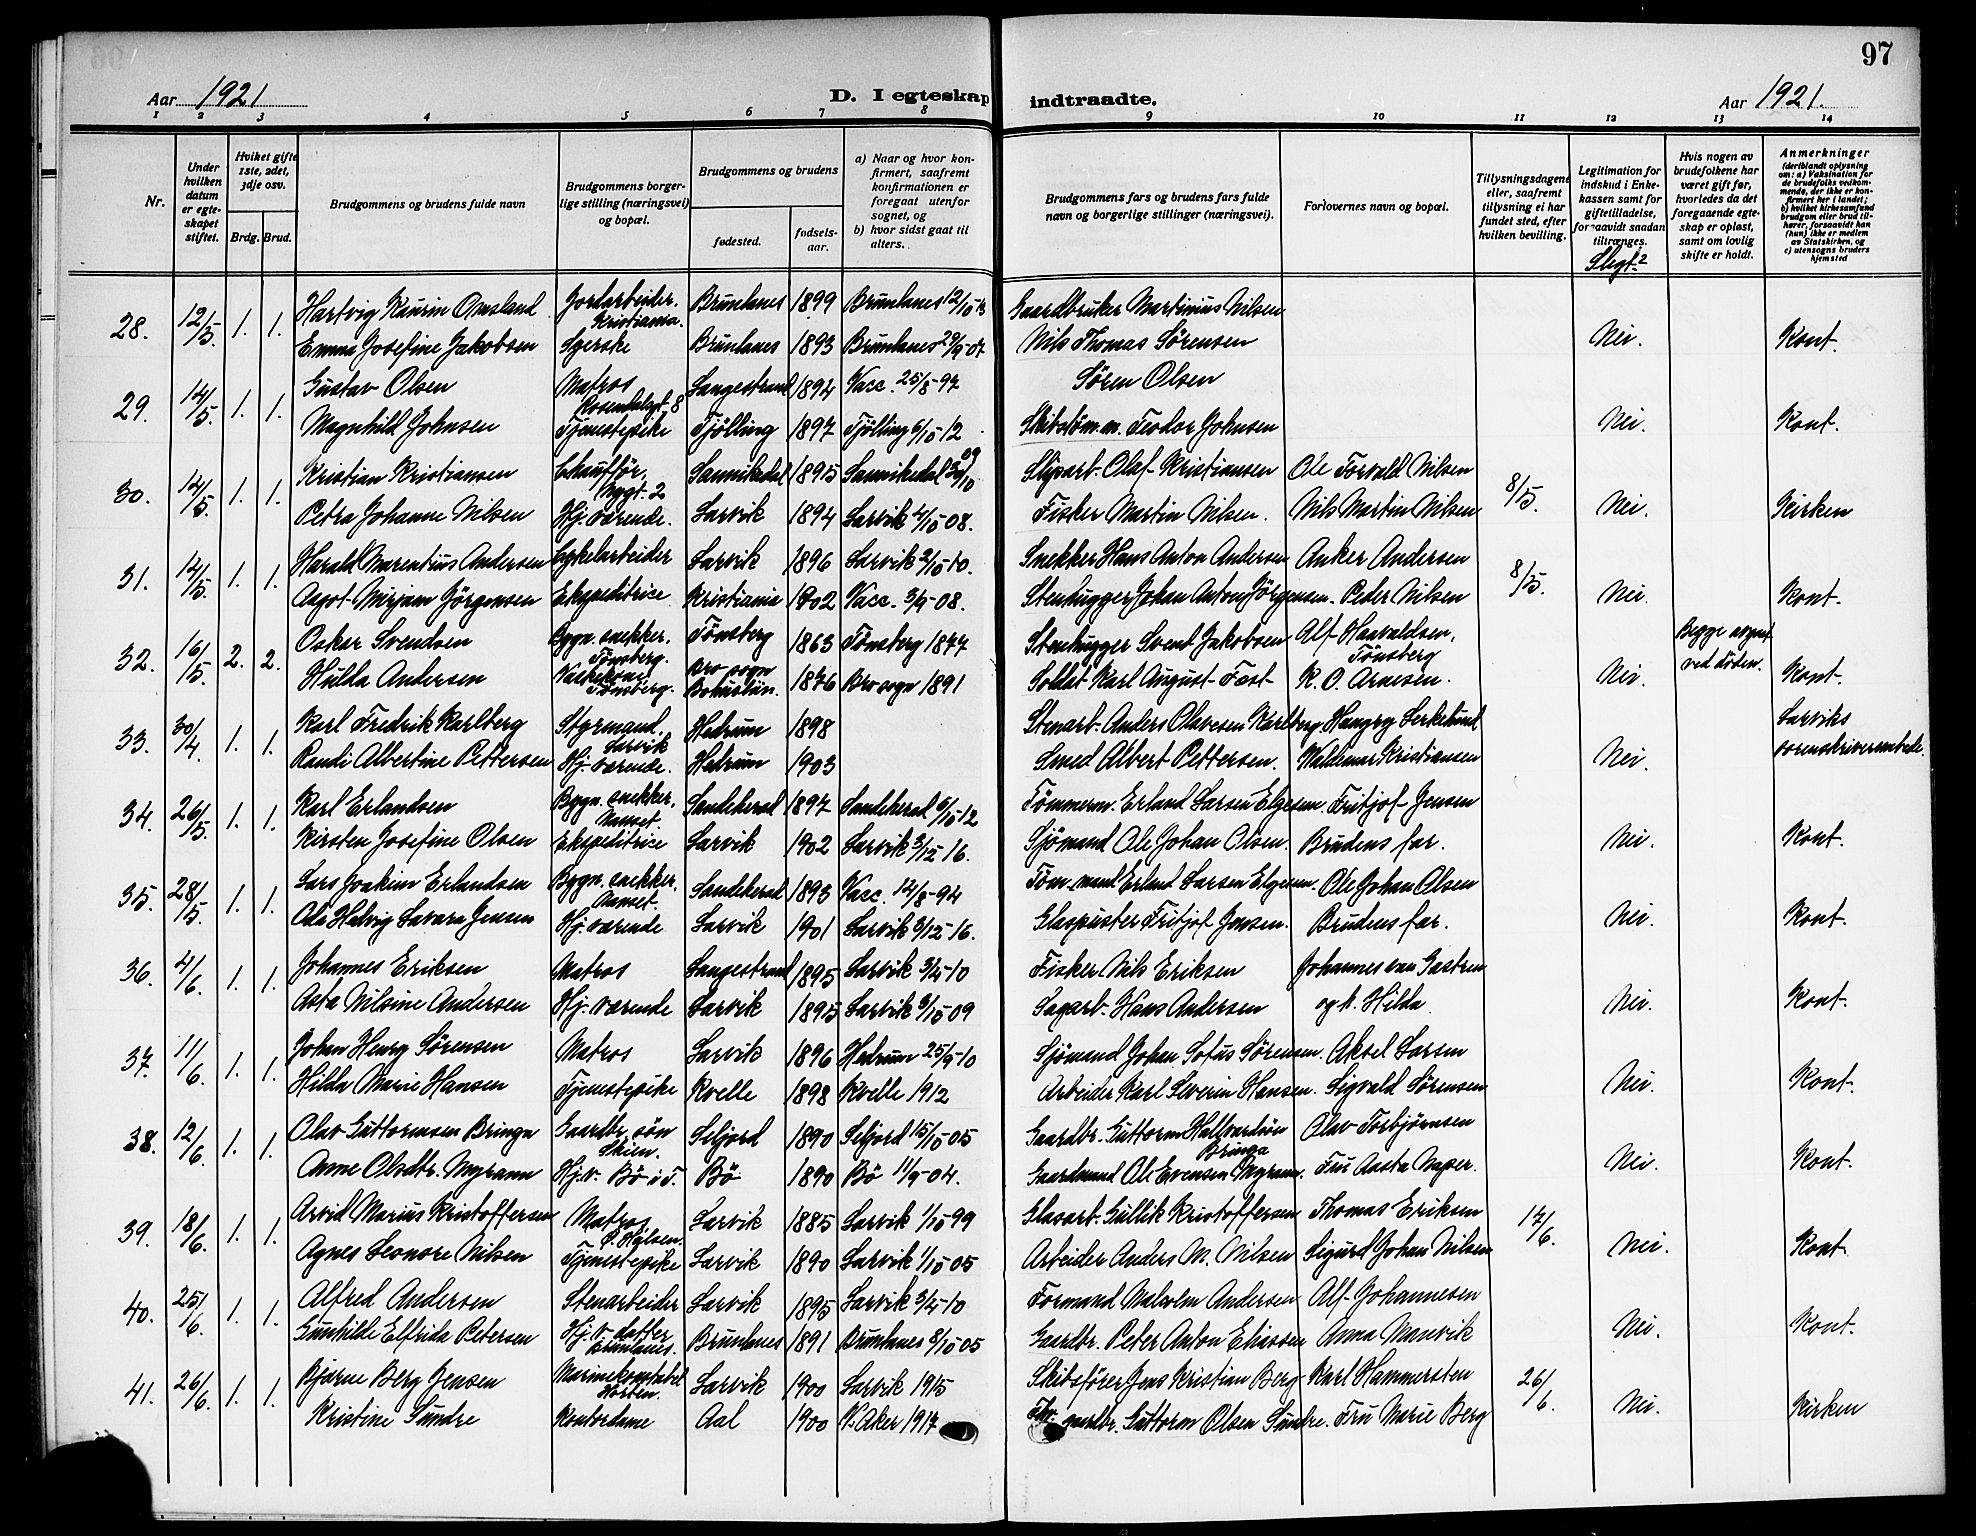 97
Aar 1921
D. I egteskap indtraadte.
Aar 1921.
1 2 3 4 5 6 7 8 9 10 11 12 13 14
Nr.
Under hvilken datum er egteskapet stiftet.
Hviket gifte 1ste, 2det, 3dje osv.
Brdg. Brud.
Brudgommens og brudens fulde navn
Brudgommens borgerlige stilling (næringsvei) og bopæl.
Brudgommens og brudens
fødested.
fødselsaar.
a) Naar og hvor konfirmert, saafremt konfirmationen er foregaat utenfor sognet, og
b) hvor sidst gaat til alters.
Brudgommens fars og brudens fars fulde navn og borgerlige stillinger (næringsvei).
Forlovernes navn og bopæl.
Tillysningsdagene eller, saafremt tillysning ei har fundet sted, efter hvilken bevilling.
Legitimation for indskud i Enkekassen samt for giftetilladelse, forsaavidt saadan tiltrænges.
Slegt?
Hvis nogen av brudefolkene har været gift før, hvorledes da det foregaaende egteskap er opløst, samt om lovlig skifte er holdt.
Anmerkninger (deriblandt oplysning om: a) Vaksination for de brudefolks vedkommende, der ikke er konfirmert her i landet; b) hvilket kirkesamfund brudgom eller brud tilhører, forsaavidt han (hun) ikke er medlem av Statskirken, og c) utensogns bruders hjemsted
28. 12/5. 1. 1. Hartvig Kaurin Omsland Jordarbeider. Kristiania. Brunlanes 1899 Brunlanes 12/10 13 Gaardbruker Martinius Nilsen
Emma Josefine Jakobsen Syerske Brunlanes 1893 Brunlanes 29/9-07 Nils Thomas Sørensen Nei. Kont.
29. 14/5. 1. 1. Gustav Olsen Matros Rosendalsgt. 8 Langestrand 1894 Vacc. 25/8-97 Søren Olsen
Magnhild Johnsen Tjenestepike Tjølling 1897 Tjølling 6/10-12 Skibstøm.m. Teodor Johnsen Nei. Kont.
30. 14/5. 1. 1. Kristian Kristiansen Chauffør. Nygt. 2 Sannikedal 1895 Sannikedal 30/10 09 Slipsarb. Olaf Kristiansen Ole Torvald Nilsen 8/5.
Petra Johanne Nilsen Hj. værende. Larvik 1894 Larvik 4/10 08. Fisker Martin Nilsen. Nils Martin Nilsen Nei. Kirken
31. 14/5. 1. 1. Harald Marentius Andersen Cykelarbeider Larvik 1896 Larvik 2/10-10. Snekker Hans Anton Andersen Anker Andersen 8/5.
Aagot Mirjam Jørgensen Ekspeditrice Kristiania 1902 Vacc. 3/9-08. Stenhugger Johan Anton Jørgensen. Peder Nilsen Nei. Kont.
32. 16/5. 2. 2. Oskar Svendsen Bygn. snekker. Tønsberg. Tønsberg 1863 Tønsberg 1877 Stenhugger Svent Jakobsen Alf Haavaldsen, Tønsberg Begge avgaat ved døden.
Hulda Andersen Vaskekone Tønsberg. Bro sogn Bohuslän. 1876 Bro sogn 1891 Soldat Karl August Fast K. O. Arnesen. Nei. Kont.
33. 30/4. 1. 1. Karl Fredrik Karlberg Styrmand. Larvik Hedrum 1898 Stenarb. Anders Olavesen Karlberg Haugry Lerkelund Larviks
Randi Albertine Pettersen Hj. værende. Hedrum 1903 Smed Albert Pettersen. Waldemar Kristiansen Nei. sorenskriverembede.
34. 26/5. 1. 1. Karl Erlandsen Bygn. snekker. Nanset. Sandeherad 1897 Sandeherad 6/10-12 Tømmerm. Erland Larsen Elgesem Fritjof Jensen
Kirsten Josefine Olsen Ekspeditrice Larvik 1902 Larvik 3/12-16. Sjømand Ole Johan Olsen. Brudens far. Nei. Kont.
35. 28/5. 1. 1. Lars Joakim Erlandsen Bygn. snekker. Nanset. Sandeherad 1893 Vacc. 12/8-94 Tøm. mand Erland Larsen Elgesem. Ole Johan Olsen
Ada Helvig Lavara Jensen Hj. værende Larvik 1901 Larvik 3/12-16. Glaspuster Fritjof Jensen. Brudens far. Nei. Kont.
36. 4/6. 1. 1. Johannes Eriksen Matros Langestrand 1895 Larvik 3/4-10 Fisker Nils Eriksen Johannes van Gastren
Asta Nilsine Andersen Hj. værende Larvik 1895 Larvik 3/10 09 Sagarb. Hans Andersen og h. Hilda. Nei. Kont.
37. 11/6. 1. 1. Johan Henry Sørensen Matros Larvik 1896 Hedrum 25/9-10 Sjømand Johan Sofus Sørensen. Aksel Larsen
Hilda Marie Hansen Tjenestepike Kvelle 1898 Kvelle 1912 Arbeider Karl Severin Hansen. Sigvald Sørensen Nei. Kont.
38. 12/6. 1. 1. Olav Guttormsen Bringa Gaardbr. søn Skien. Seljord 1890 Seljord 15/10-05 Gaardbr. Guttorm Hallvardson Bringa Olav Torbjørnsen
Anne Olsdtr. Myrann Hj. v. Bø i T. Bø 1890 Bø 11/9-04. Gaardmand Ole Evensen Myrann. Fru Aasta Naper. Nei. Kont.
39. 18/6. 1. 1. Arvid Marius Kristoffersen Matros Larvik 1885 Larvik 1/10 99 Glasarb. Gullik Kristoffersen Thomas Eriksen 17/6.
Agnes Leonore Nilsen Tjenestepike Larvik 1890 Larvik 1/10 05 Arbeider Anders M. Nilsen Sigurd Johan Nilsen Nei. Kont.
40. 25/6. 1. 1. Alfred Andersen Stenarbeider Larvik 1895 Larvik 3/4-10 Formand Malvolm Andersen Alf Johannesen
Gunhilde Elfrida Petersen Hj. v. datter Brunlanes. Brunlanes 1891 Brunlanes 8/10 05 Gaardbr. Peter Anton Eliassen Anna Manvik Nei. Kont.
41. 26/6. 1. 1. Bjarne Berg Jensen Marinekonstabel Horten. Larvik 1900 Larvik 1915 Skibsfører Jens Kristian Berg Karl Hammersten 26/6.
Kristine Sundre Kontordame Aal 1900 V. Aker 1917 Fhv. gaardbr. Guttorm Olsen Sundre. Fru Marie Berg Nei. Kirken